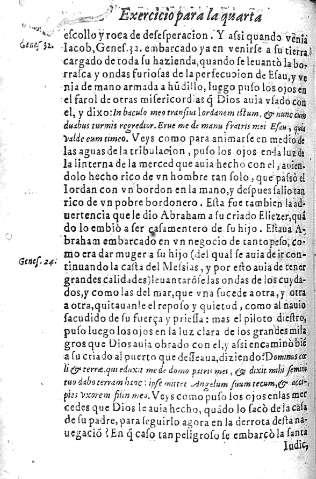 Exercicio para la quarta
escollo y roca de desesperacion. Y assi quando venia
Genes. 32.
Iacob, Genes. 32. embarcado ya en venirse a su tierra
cargado de toda su hazienda, quando se leuantò la bor
rasca y ondas furiosas de la persecucion de Esau, y ve
nia de mano armada a hũdillo, luego puso los ojos en
el farol de otras misericordias q̃ Dios auia vsado con
el, y dixo: In baculo meo transiui Iordanem istum, & nunc cum
duabus turmis regredior. Erue me de manu fratris mei Esau, quia
valde eum timeo. Veys como para animarse en medio de
las aguas de la tribulacion, puso los ojos en la luz de
la linterna de la merced que auia hecho con el, auien-
dolo hecho rico de vn hombre tan solo, que passò el
Iordan con vn bordon en la mano, y despues salio tan
rico de vn pobre bordonero. Esta fue tambien la ad-
uertencia que le dio Abraham a su criado Eliezer, quã
do lo embiò a ser casamentero de su hijo. Estaua A-
braham embarcado en vn negocio de tanto peso, co-
Genes. 24.
mo era dar muger a su hijo (del qual se auia de ir con-
tinuando la casta del Messias, y por esto auia de tener
grandes calidades) leuantaróse las ondas de los cuyda-
dos, y como las del mar, que vna sucede a otra, y otra
a otra, quitauanle el reposo y quietud, como al nauio
sacudido de su fuerça y priessa: mas el piloto diestro,
puso luego los ojos en la luz clara de los grandes mila
gros que Dios auia obrado con el, y assi encaminò biē
a su criado al puerto que desseaua, diziendo: Dominus cœ
li & terræ, qui eduxit me de domo patris mei, & dixit mihi semini
tuo dabo terram hanc: ipse mittet Angelum suum tecum, & acci-
pies vxorem filio meo. Veys como puso los ojos en las mer
cedes que Dios le auia hecho, quãdo lo sacò de la casa
de su padre, para seguirlo agora en la derrota desta na-
uegació? En q̃ caso tan peligroso se embarcò la santa
Iudic,